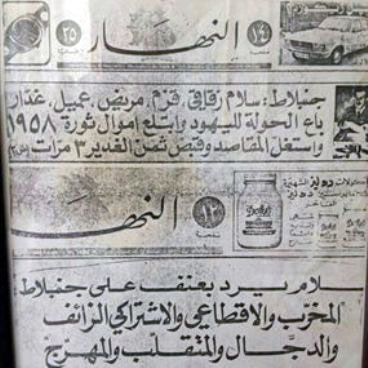 ١٤
صفحة
النهار
٢٥
جنبلاط: سلام رفاقي، قزم، مريض، عميل، غدّار
باع الحولة لليهود وابتلع اموال ثورة ١٩٥٨
واستغل المقاصد وقبض ثمن الغدير ٣ مرات
١٢
صفحة
النهـار
سلام يرد بعنف على جنبلاط
المخرّب والاقطاعي والاشتراكي الزائف
والدجّال والمتقلّب والمهرّج